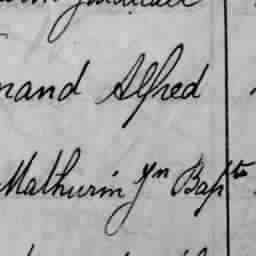 nand Alfred
Mathurin Jn Bapte